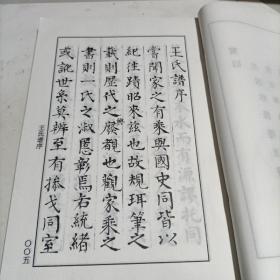 王氏譜序
嘗聞家之有乘與國史同皆以
紀往蹟昭來玆也故規珥筆之
裁則歷代之廢興也觀家乘之
書則一氏之淑慝彰焉右統緒
或訛世系莫辨至有操戈同室
王氏譜序
〇〇五